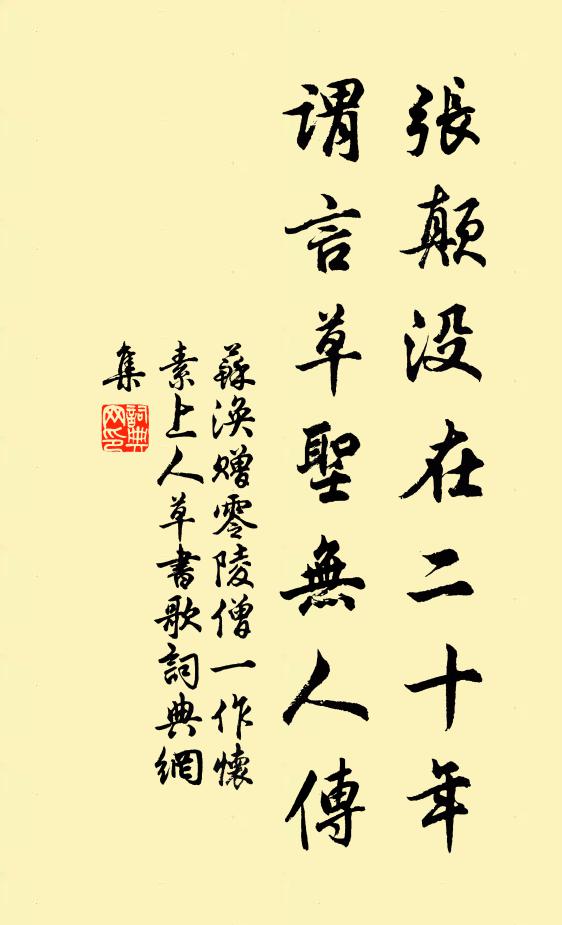 張顛沒在二十年
謂言草聖無人傳
蘇渙贈零陵僧一作懷
素上人草書歌詞典網
集
詞典
网印